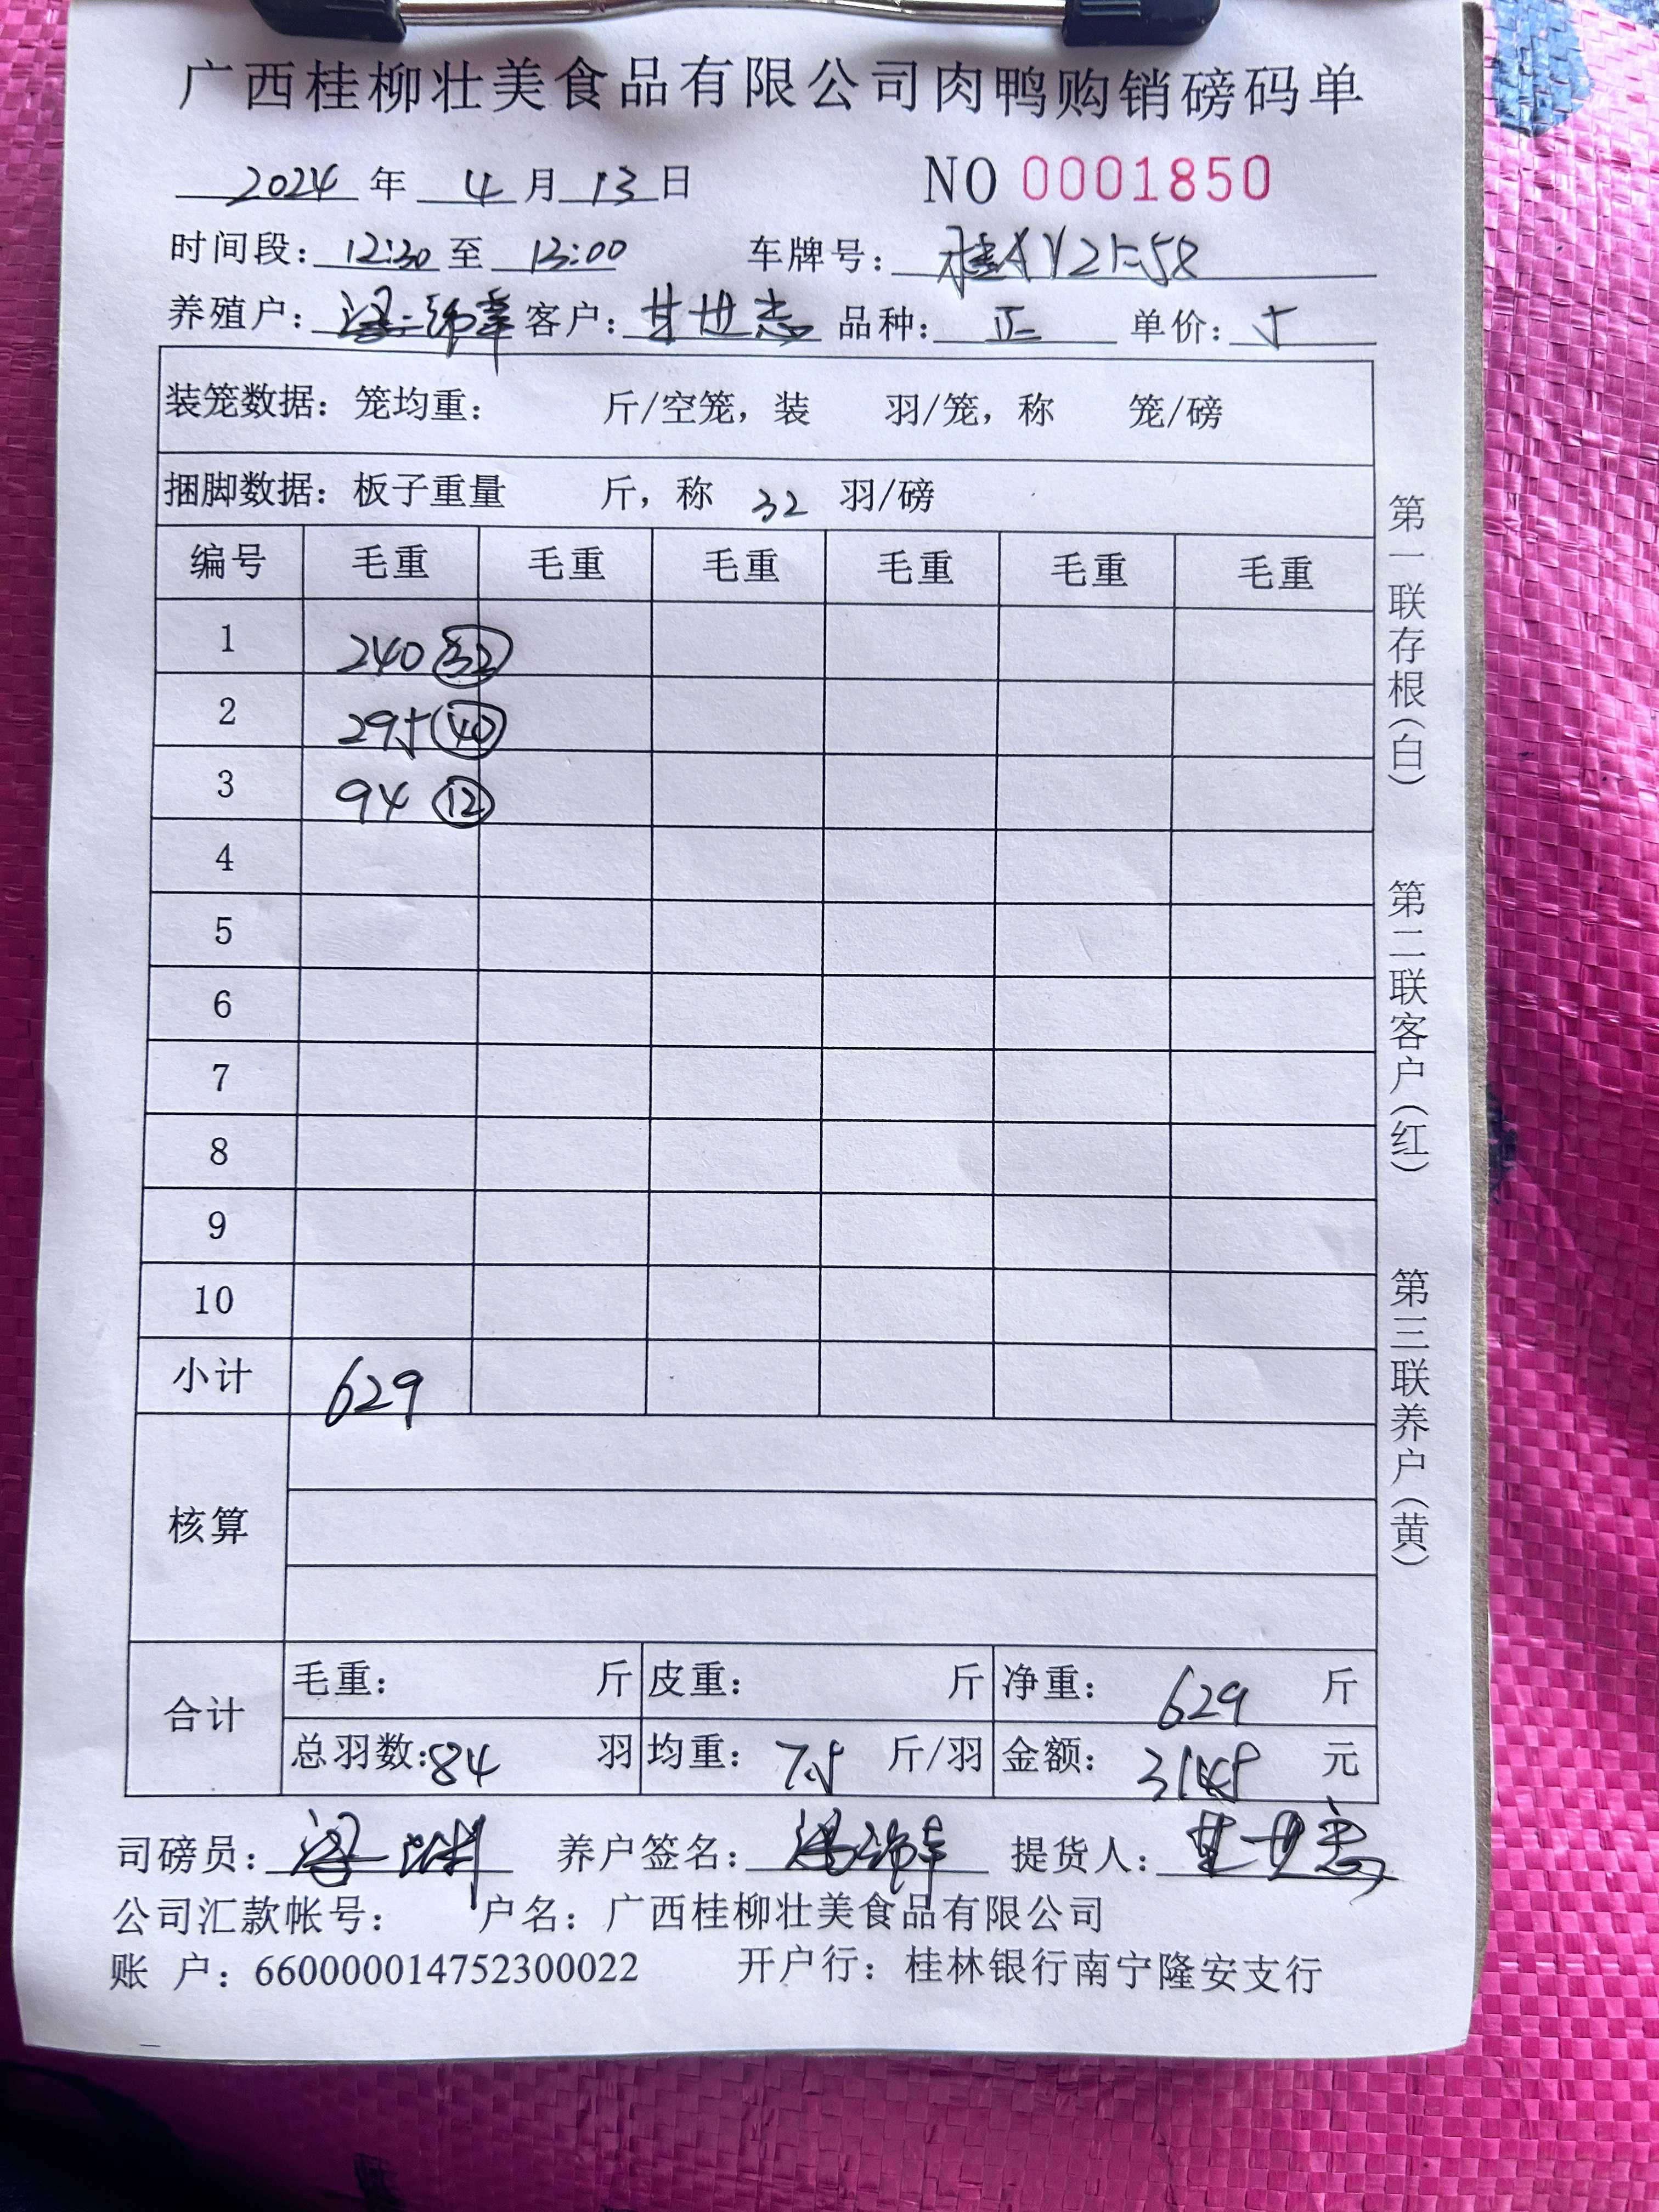 广西桂柳壮美食品有限公司肉鸭购销磅码单
2024 年 4 月 13 日 NO 0001850
时间段: 12:30 至 13:00 车牌号: 桂A
养殖户: 客户: 甘世志 品种: 正 单价: 5
装笼数据: 笼均重: 斤/空笼, 装 羽/笼, 称 笼/磅
捆脚数据: 板子重量 斤, 称 32 羽/磅
编号 毛重 毛重 毛重 毛重 毛重 毛重
1 240 32
2 295 40
3 94 12
4
5
6
7
8
9
10
小计 629
核算
合计 毛重: 斤 皮重: 斤 净重: 629 斤
总羽数: 84 羽 均重: 7.5 斤/羽 金额: 3145 元
司磅员: 梁 养户签名: 提货人: 甘世志
公司汇款帐号: 户名: 广西桂柳壮美食品有限公司
账 户: 660000014752300022 开户行: 桂林银行南宁隆安支行
第一联存根(白)
第二联客户(红)
第三联养户(黄)